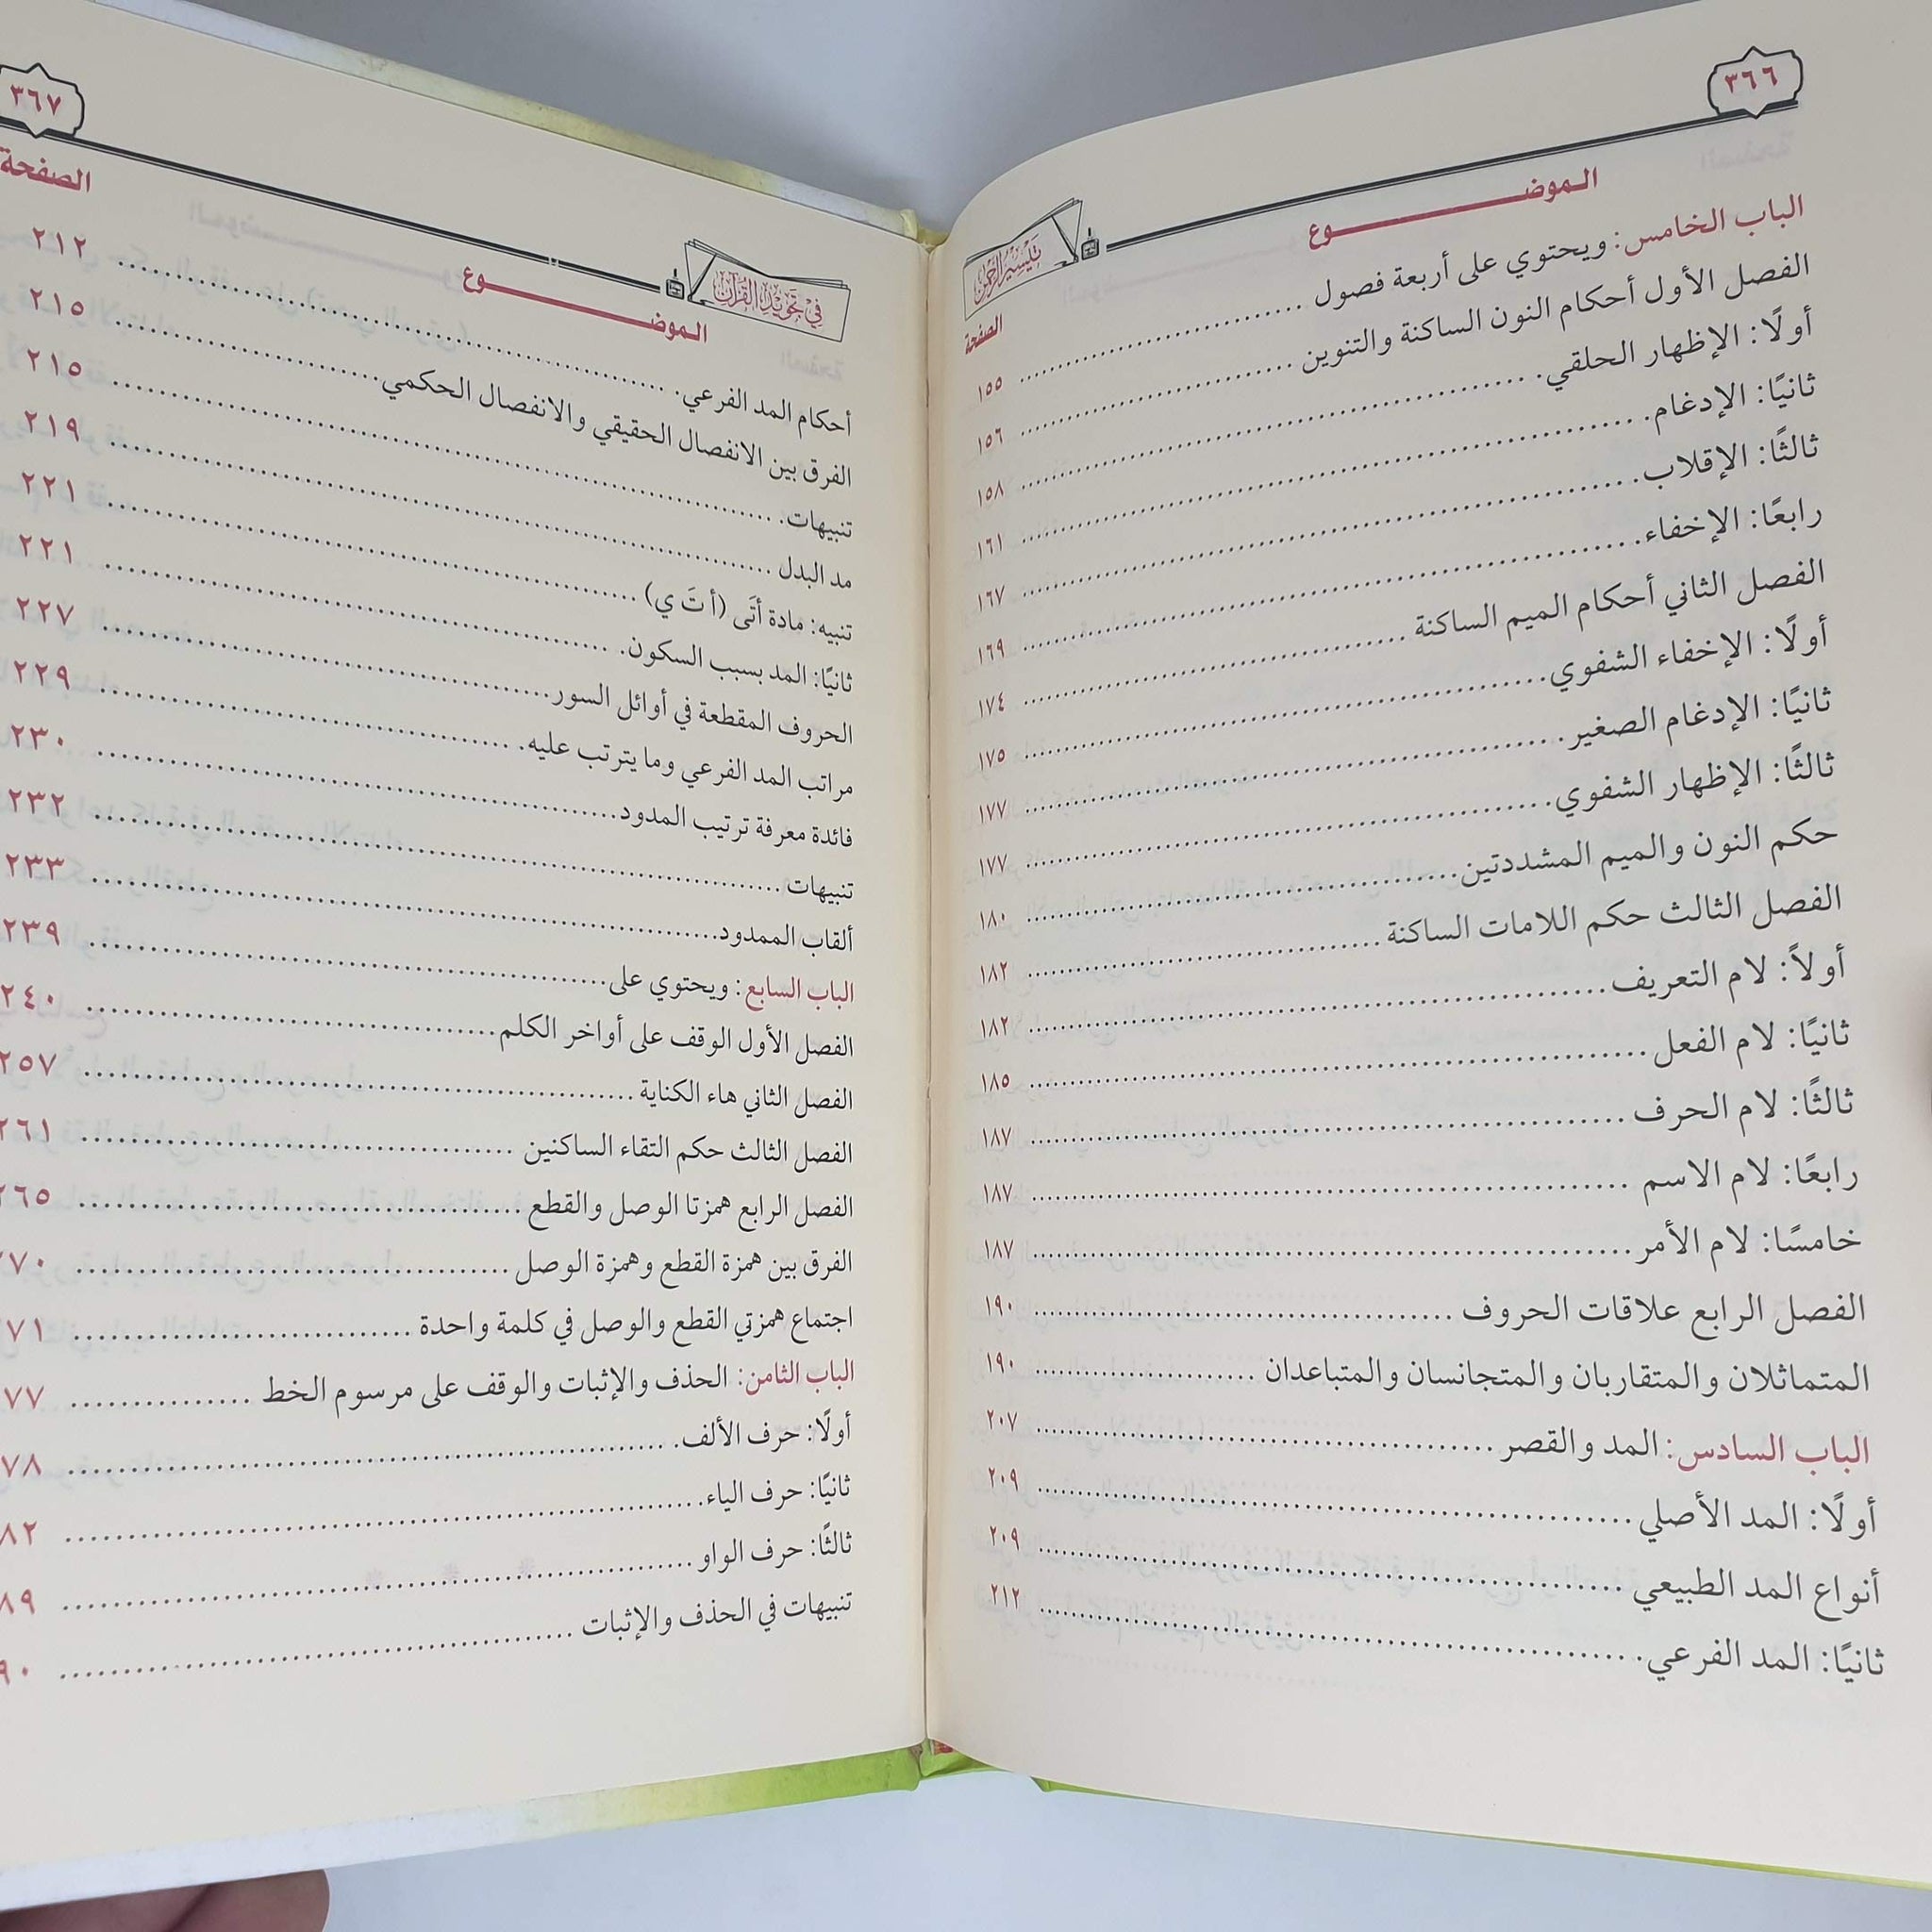 ٣٦٦
تيسير الرحمن
الموضـــــــــوع
الصفحة
الباب الخامس: ويحتوي على أربعة فصول ١٥٥
الفصل الأول أحكام النون الساكنة والتنوين ١٥٦
أولًا: الإظهار الحلقي ١٥٨
ثانيًا: الإدغام ١٦١
ثالثًا: الإقلاب ١٦٧
رابعًا: الإخفاء ١٦٩
الفصل الثاني أحكام الميم الساكنة ١٧٤
أولًا: الإخفاء الشفوي ١٧٥
ثانيًا: الإدغام الصغير ١٧٧
ثالثًا: الإظهار الشفوي ١٧٧
حكم النون والميم المشددتين ١٨٠
الفصل الثالث حكم اللامات الساكنة ١٨٢
أولاً: لام التعريف ١٨٢
ثانيًا: لام الفعل ١٨٥
ثالثًا: لام الحرف ١٨٧
رابعًا: لام الاسم ١٨٧
خامسًا: لام الأمر ١٨٧
الفصل الرابع علاقات الحروف ١٩٠
المتماثلان والمتقاربان والمتجانسان والمتباعدان ١٩٠
الباب السادس: المد والقصر ٢٠٧
أولًا: المد الأصلي ٢٠٩
أنواع المد الطبيعي ٢٠٩
ثانيًا: المد الفرعي ٢١٢
في تجويد القرآن
٣٦٧
الموضـــــــــوع
الصفحة
أحكام المد الفرعي ٢١٢
الفرق بين الانفصال الحقيقي والانفصال الحكمي ٢١٥
تنبيهات ٢١٥
مد البدل ٢١٩
تنبيه: مادة أتَى (أ تَ ي) ٢٢١
ثانيًا: المد بسبب السكون ٢٢١
الحروف المقطعة في أوائل السور ٢٢٧
مراتب المد الفرعي وما يترتب عليه ٢٢٩
فائدة معرفة ترتيب المدود ٢٣٠
تنبيهات ٢٣٢
ألقاب الممدود ٢٣٣
الباب السابع: ويحتوي على ٢٣٩
الفصل الأول الوقف على أواخر الكلم ٢٤٠
الفصل الثاني هاء الكناية ٢٥٧
الفصل الثالث حكم التقاء الساكنين ٢٦١
الفصل الرابع همزتا الوصل والقطع ٢٦٥
الفرق بين همزة القطع وهمزة الوصل ٧٠
اجتماع همزتي القطع والوصل في كلمة واحدة ٧١
الباب الثامن: الحذف والإثبات والوقف على مرسوم الخط ٧٧
أولًا: حرف الألف ٧٨
ثانيًا: حرف الياء ٨٢
ثالثًا: حرف الواو ٨٩
تنبيهات في الحذف والإثبات ٩٠